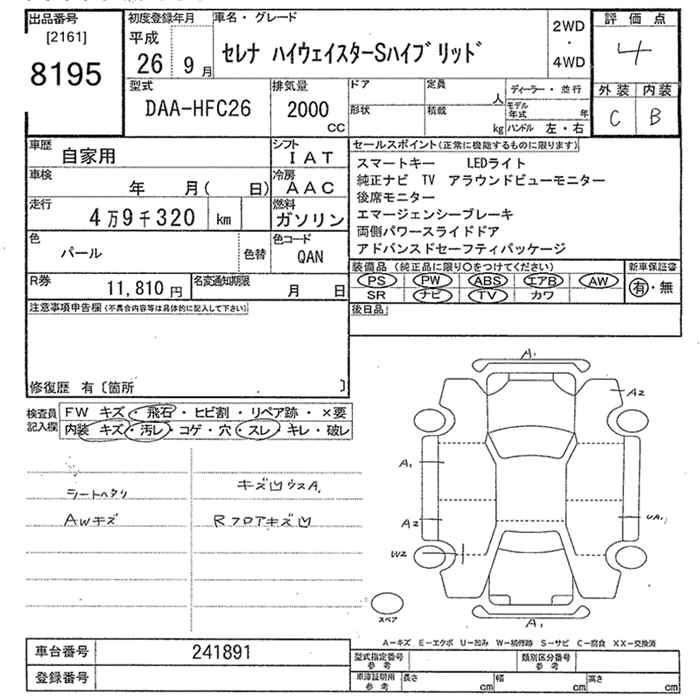 出品番号
[2161]
8195
初度登録年月
平成
26 9 月
車名・グレード
セレナ ハイウェイスターSハイブリッド
2WD
・
4WD
評価点
4
外装 内装
C B
型式
DAA-HFC26
排気量
2000
CC
ドア
定員
人
形状
積載
kg
ディーラー・並行
モデル年式 年
ハンドル 左・右
車歴
自家用
シフト
IAT
車検
年 月( 日)
冷房
AAC
走行
4万9千320 km
燃料
ガソリン
色
パール
色替
色コード
QAN
R券
11,810 円
名変通知期限
月 日
セールスポイント(正常に機能するものに限ります)
スマートキー LEDライト
純正ナビ TV アラウンドビューモニター
後席モニター
エマージェンシーブレーキ
両側パワースライドドア
アドバンスドセーフティパッケージ
装備品(純正品に限り○をつけてください)
PS PW ABS エアB AW
SR ナビ TV カワ
新車保証書
有・無
後日品
注意事項申告欄(不具合内容等は具体的に記入して下さい)
修復歴 有〔箇所 〕
検査員記入欄
FW キズ・飛石・ヒビ割・リペア跡・×要
内装 キズ・汚レ・コゲ・穴・スレ・キレ・破レ
シートヘタリ
AWキズ
キズ凹ウスA1
RフロアキズU凹
A1
A2
A1
A2
UA1
W2
A1
スペア
A-キズ E-エクボ U-凹み W-補修跡 S-サビ C-腐食 XX-交換済
車台番号
241891
登録番号
型式指定番号
参考
類別区分番号
参考
車庫証明用
参考
長さ cm
幅 cm
高さ cm